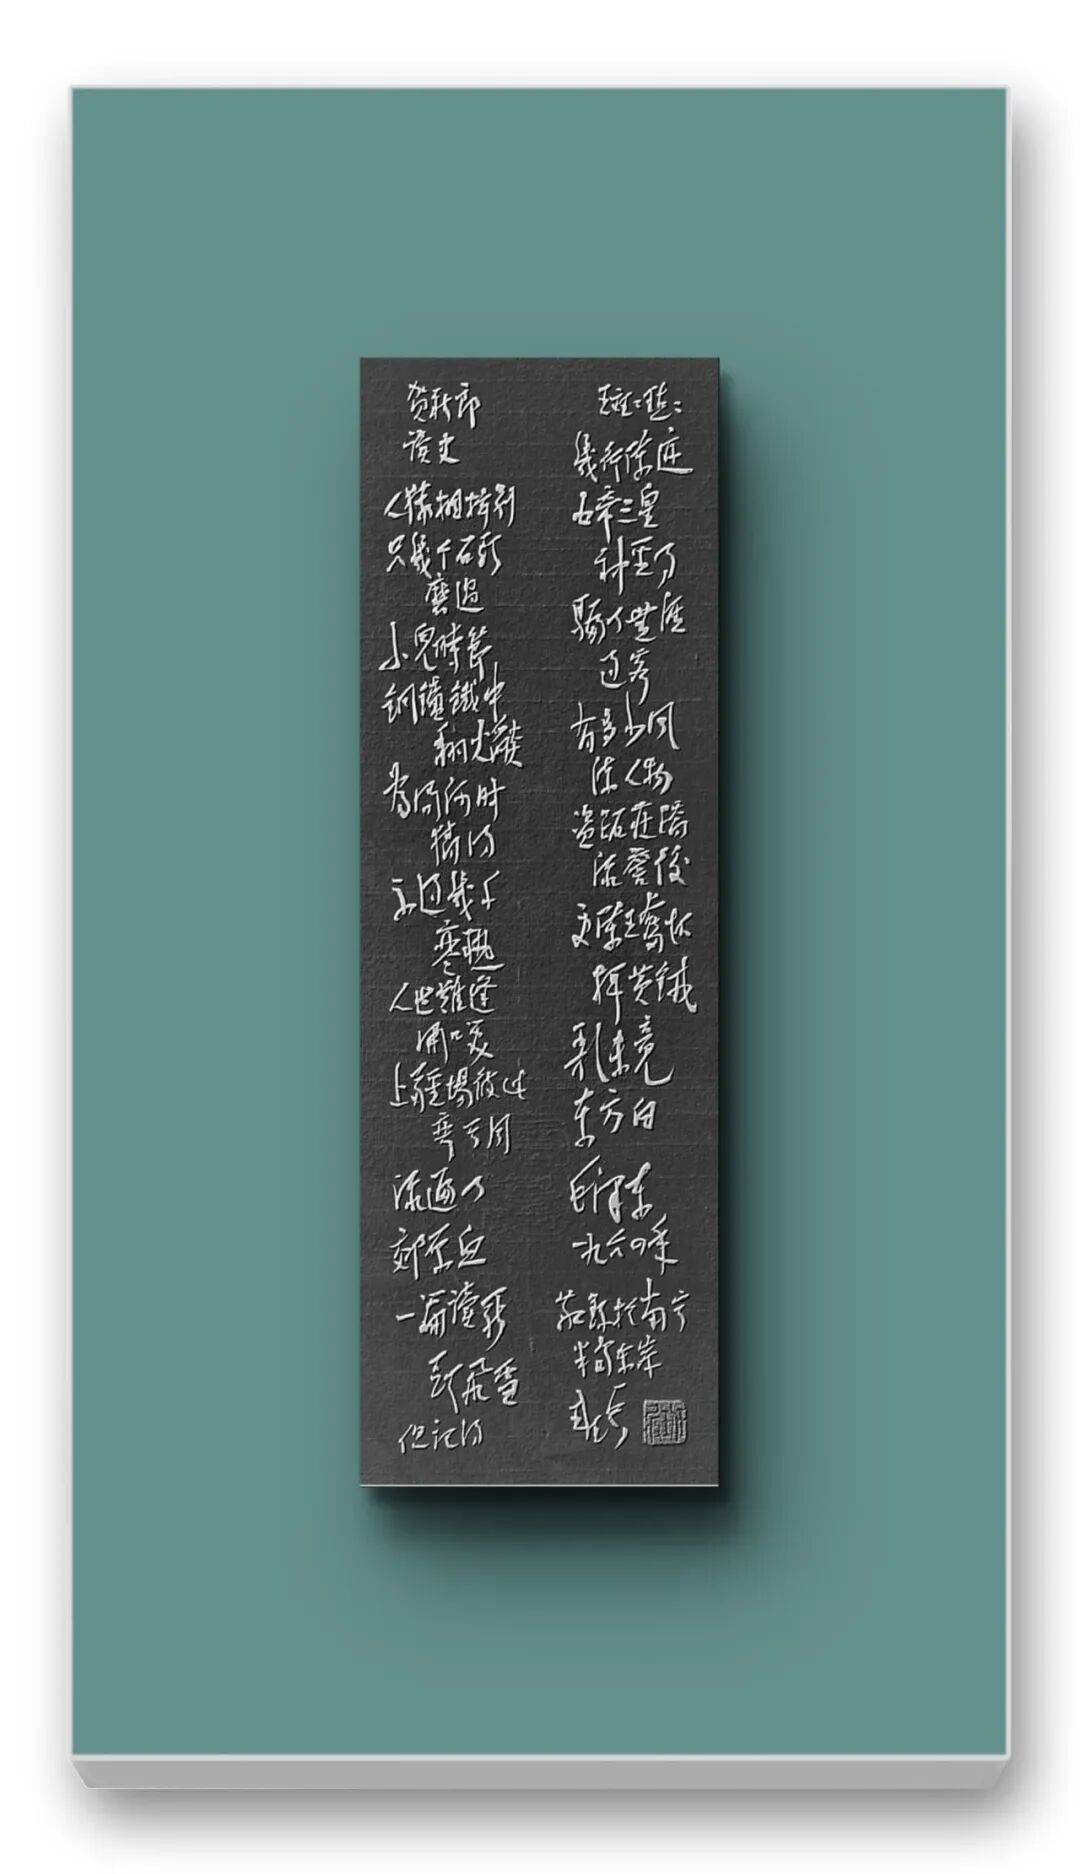 贺新郎
读史
人猿相揖别
只幾个石头
磨过
小兒時節
铜鑪鐵中
翻火焰
为问何时
猜得
不过幾千
寒热
人世難逢
开口笑
上疆場彼此
弯弓月
流遍了
郊原血
一篇读罢
头飛雪
但记得
斑〻点〻
幾行陈迹
五帝三皇
神圣事
騙了無涯
过客
有多少风
流人物
盗跖庄蹻
流誉後
更陈王奮起
挥黄钺
歌未竟
东方白
毛泽东
一九六四年
录于南宁
东岸